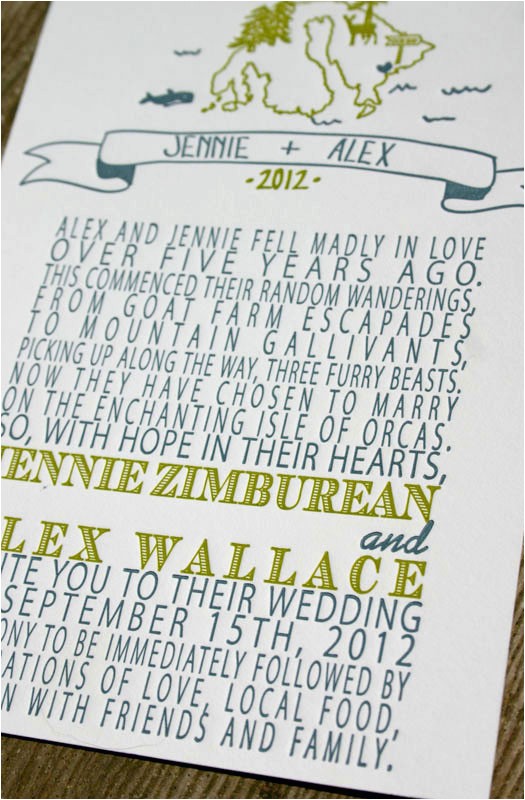 JENNIE + ALEX
-2012-
ALEX AND JENNIE FELL MADLY IN LOVE
OVER FIVE YEARS AGO.
THIS COMMENCED THEIR RANDOM WANDERINGS,
FROM GOAT FARM ESCAPADES
TO MOUNTAIN GALLIVANTS,
PICKING UP ALONG THE WAY, THREE FURRY BEASTS.
NOW THEY HAVE CHOSEN TO MARRY
ON THE ENCHANTING ISLE OF ORCAS.
SO, WITH HOPE IN THEIR HEARTS,
JENNIE ZIMBUREAN
and
LEX WALLACE
ITE YOU TO THEIR WEDDING
SEPTEMBER 15TH, 2012
ONY TO BE IMMEDIATELY FOLLOWED BY
RATIONS OF LOVE, LOCAL FOOD,
N WITH FRIENDS AND FAMILY.